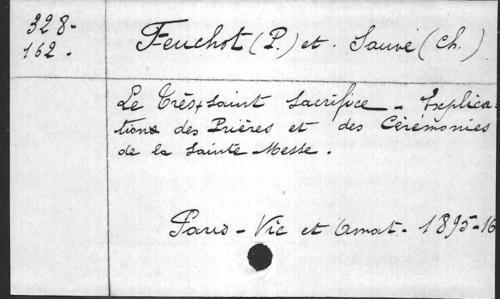 328-
162.
Feuchot (P.) et Sauvé (Ch.)
Le Très Saint Sacrifice - Explica-
tions des Prières et des Cérémonies
de la Sainte Messe.
Paris - Vic et Amat - 1895-16